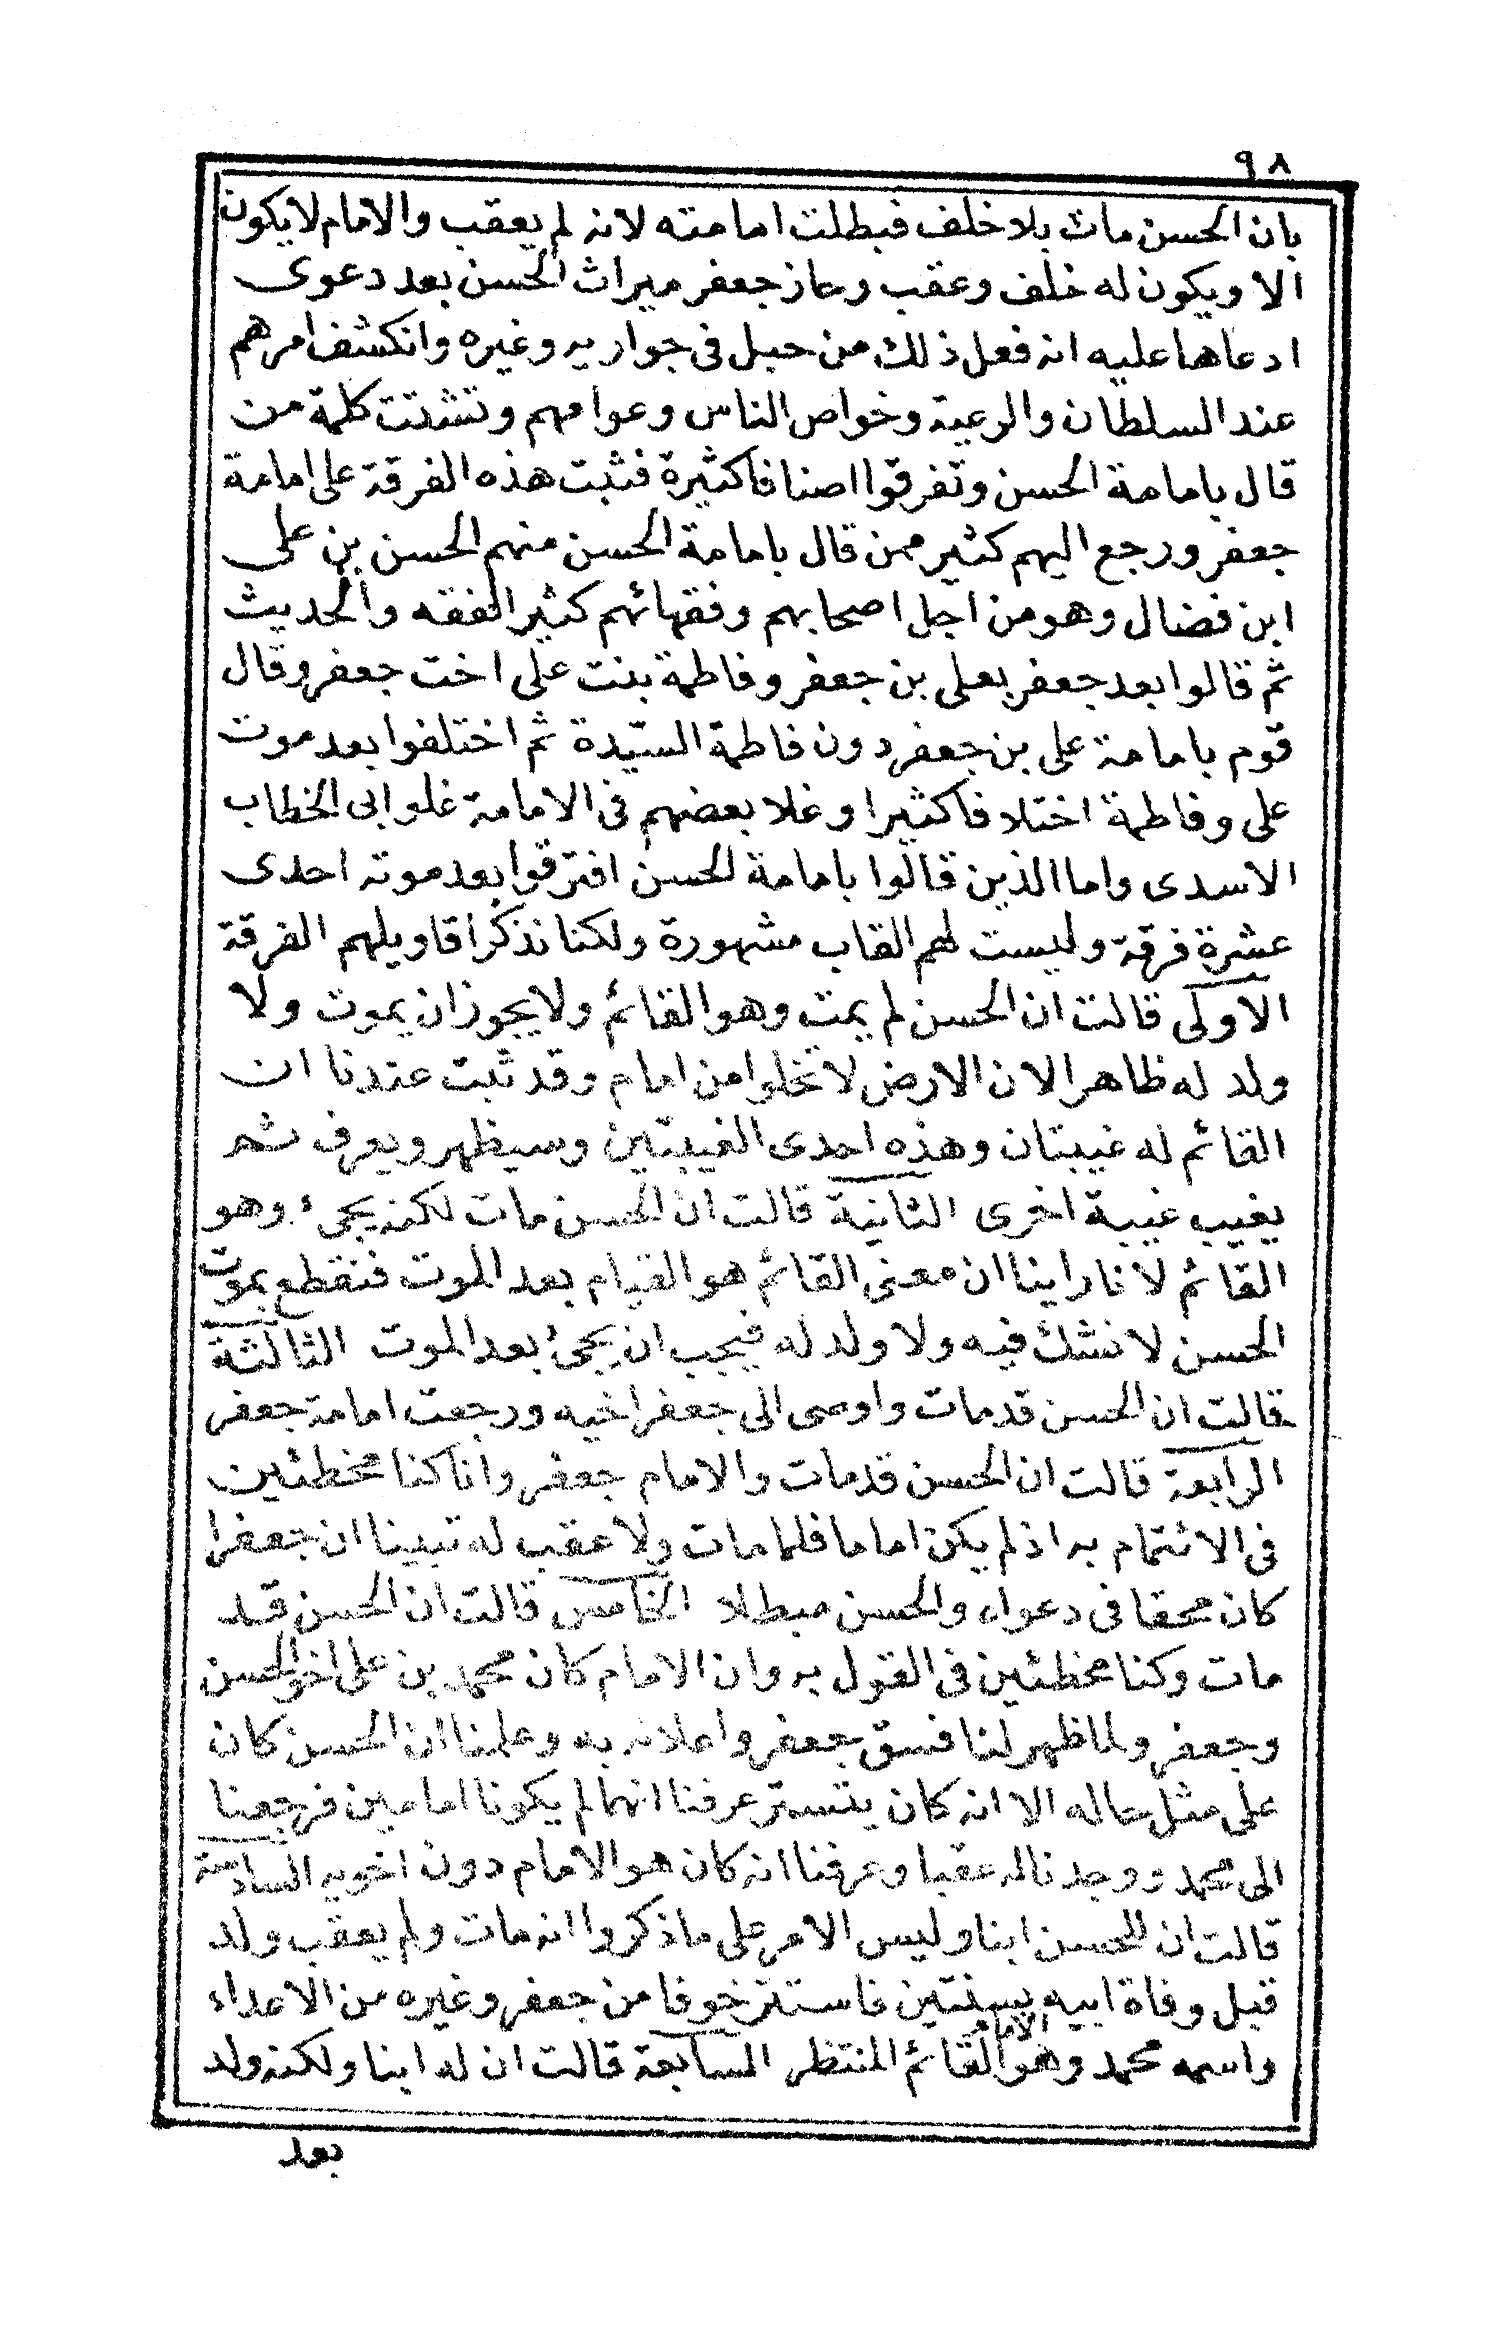 ٩٨
بان الحسن مات بلا خلف فبطلت امامته لانه لم يعقب والامام لا يكون
الا ويكون له خلف وعقب وحاز جعفر ميراث الحسن بعد دعوى
ادعاها عليه انه فعل ذلك من حبل فى جواريه وغيره وانكشف امرهم
عند السلطان والرعية وخواص الناس وعوامهم وتشتت كلمة من
قال بامامة الحسن وتفرقوا اصنافا كثيرة فثبت هذه الفرقة على امامة
جعفر ورجع اليهم كثير ممن قال بامامة الحسن منهم الحسن بن على
ابن فضال وهو من اجل اصحابهم وفقهائهم كثير الفقه والحديث
ثم قالوا بعد جعفر بعلى بن جعفر وفاطمة بنت على اخت جعفر وقال
قوم بامامة على بن جعفر دون فاطمة السيّدة ثم اختلفوا بعد موت
على وفاطمة اختلافا كثيرا وغلا بعضهم فى الامامة غلو ابى الخطاب
الاسدى واما الذين قالوا بامامة الحسن افترقوا بعد موته احدى
عشرة فرقة وليست لهم القاب مشهورة ولكنا نذكر اقاويلهم الفرقة
الاولى قالت ان الحسن لم يمت وهو القائم ولا يجوز ان يموت ولا
ولد له ظاهر الان الارض لا تخلوا من امام وقد ثبت عندنا ان
القائم له غيبتان وهذه احدى الغيبتين وسيظهر ويعرف ثم
يغيب غيبة اخرى الثانية قالت ان الحسن مات لكنه يجئ وهو
القائم لانا راينا ان معنى القائم هو القيام بعد الموت فنقطع بموت
الحسن لا نشك فيه ولا ولد له فيجب ان يجئ بعد الموت الثالثة
قالت ان الحسن قد مات واوصى الى جعفر اخيه ورجعت امامة جعفر
الرابعة قالت ان الحسن قد مات والامام جعفر وانا كنا مخطئين
فى الائتمام به اذ لم يكن اماما فلما مات ولا عقب له تبينا ان جعفرا
كان محقا فى دعواه والحسن مبطلا الخامس قالت ان الحسن قد
مات وكنا مخطئين فى القول به وان الامام كان محمد بن على اخو الحسن
وجعفر ولما ظهر لنا فسق جعفر واعلانه به وعلمنا ان الحسن كان
على مثل حاله الا انه كان يتستر عرفنا انهما لم يكونا امامين فرجعنا
الى محمد ووجدنا له عقبا وعرفنا انه كان هو الامام دون اخويه السادسة
قالت ان للحسن ابنا وليس الامر على ما ذكروا انه مات ولم يعقب ولد
قبل وفاة ابيه بسنتين فاستتر خوفا من جعفر وغيره من الاعداء
واسمه محمد وهو الامام القائم المنتظر السابعة قالت ان له ابنا ولكنه ولد
بعد